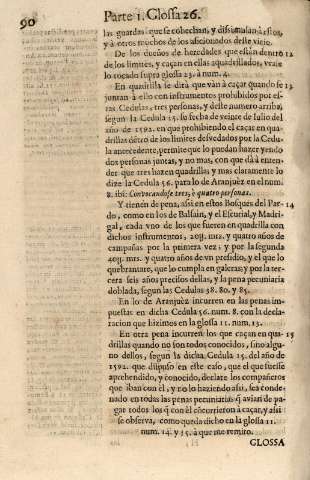 90
Parte 1. Glossa 26.
las guardas que se cohechan, y dissimulan à estos,
y à otros muchos de los aficionados deste vicio.
De los dueños de heredades que estàn dentro 12
de los limites, y caçan en ellas aquadrillados, vease
lo tocado supra glossa 23. à num. 4.
En quadrilla se dirà que vàn à caçar quando se 13
juntan à ello con instrumentos prohibidos por es-
tas Cedulas, tres personas, y deste numero arriba,
segun la Cedula 15. su fecha de veinte de Iulio del
año de 1592. en que prohibiendo el caçar en qua-
drillas dẽtro de los limites desvedados por la Cedu-
la antecedente, permite que lo puedan hazer yendo
dos personas juntas, y no mas, con que dà à enten-
der que tres hazen quadrillas y mas claramente lo
dize la Cedula 56. para lo de Aranjuèz en el num.
8. ibi: Convocandose tres, è quatro personas.
Y tienen de pena, assi en estos Bosques del Par- 14
do, como en los de Balsain, y el Escurial, y Madri-
gal, cada vno de los que fueren en quadrilla con
dichos instrumentos, 20ɥ. mrs. y quatro años de
campañas por la primera vez; y por la segunda
40ɥ. mrs. y quatro años de vn presidio, y el que lo
quebrantare, que lo cumpla en galeras; y por la ter-
cera seis años precisos dellas, y la pena pecuniaria
doblada, segun las Cedulas 58. 80. y 85.
En lo de Aranjuèz incurren en las penas im-
puestas en dicha Cedula 56. num. 8. con la decla-
racion que hazimos en la glossa 11. num. 13.
En otra pena incurren los que caçan en qua- 15
drillas quando no son todos conocidos, sino algu-
no dellos, segun la dicha Cedula 15. del año de
1592. que dispuso en este caso, que el que fuesse
aprehendido, y conocido, declare los compañeros
que iban con èl, y no lo haziendo assi, sea conde-
nado en todas las penas pecuniarias q̃ avian de pa-
gar todos los q̃ con èl cõcurrieron à caçar, y assi
se observa, como queda dicho en la glossa 11.
num. 14. y 15. à que me remito.
GLOSSA